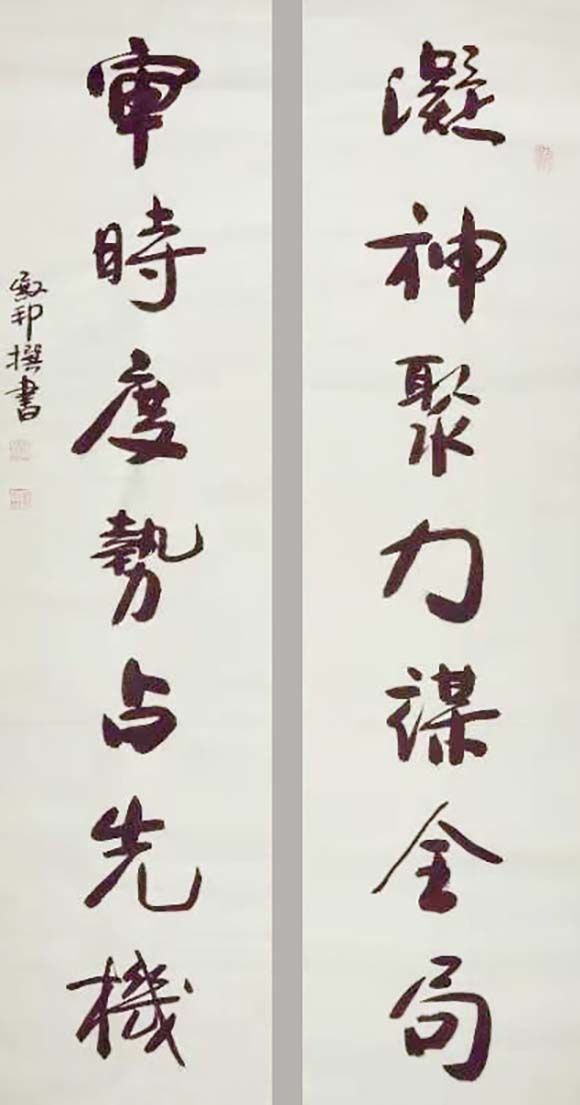 凝神聚力謀全局
審時度勢占先機
敬邦撰書